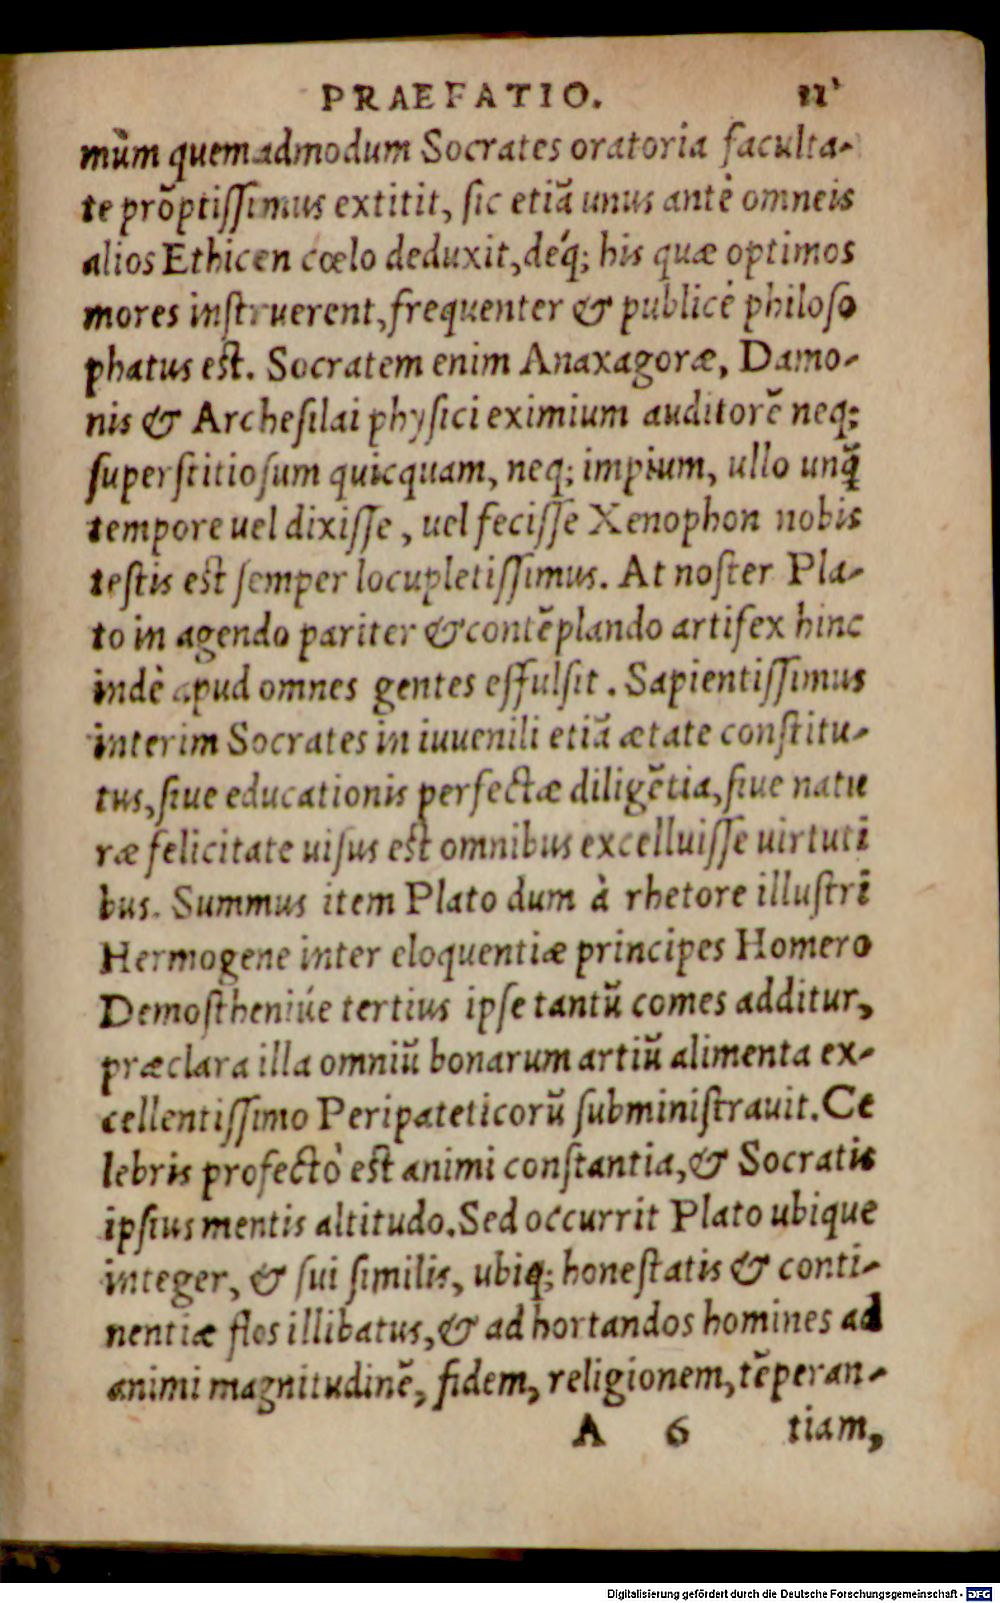 PRAEFATIO. 11
mùm quemadmodum Socrates oratoria faculta-
te prõptissimus extitit, sic etiã unus antè omneis
alios Ethicen cœlo deduxit, déq; his quæ optimos
mores instruerent, frequenter & publicè philoso
phatus est. Socratem enim Anaxagoræ, Damo-
nis & Archesilai physici eximium auditorẽ neq;
superstitiosum quicquam, neq; impium, ullo unq̃
tempore uel dixisse, uel fecisse Xenophon nobis
testis est semper locupletissimus. At noster Pla-
to in agendo pariter & contẽplando artifex hinc
indè apud omnes gentes effulsit. Sapientissimus
interim Socrates in iuuenili etiã ætate constitu-
tus, siue educationis perfectæ diligẽtia, siue natu
ræ felicitate uisus est omnibus excelluisse uirtuti
bus. Summus item Plato dum à rhetore illustri
Hermogene inter eloquentiæ principes Homero
Demostheniúe tertius ipse tantũ comes additur,
præclara illa omniũ bonarum artiũ alimenta ex-
cellentissimo Peripateticorũ subministrauit. Ce
lebris profectò est animi constantia, & Socratis
ipsius mentis altitudo. Sed occurrit Plato ubique
integer, & sui similis, ubiq; honestatis & conti-
nentiæ flos illibatus, & ad hortandos homines ad
animi magnitudinẽ, fidem, religionem, tẽperan-
A 6 tiam,
Digitalisierung gefördert durch die Deutsche Forschungsgemeinschaft - DFG